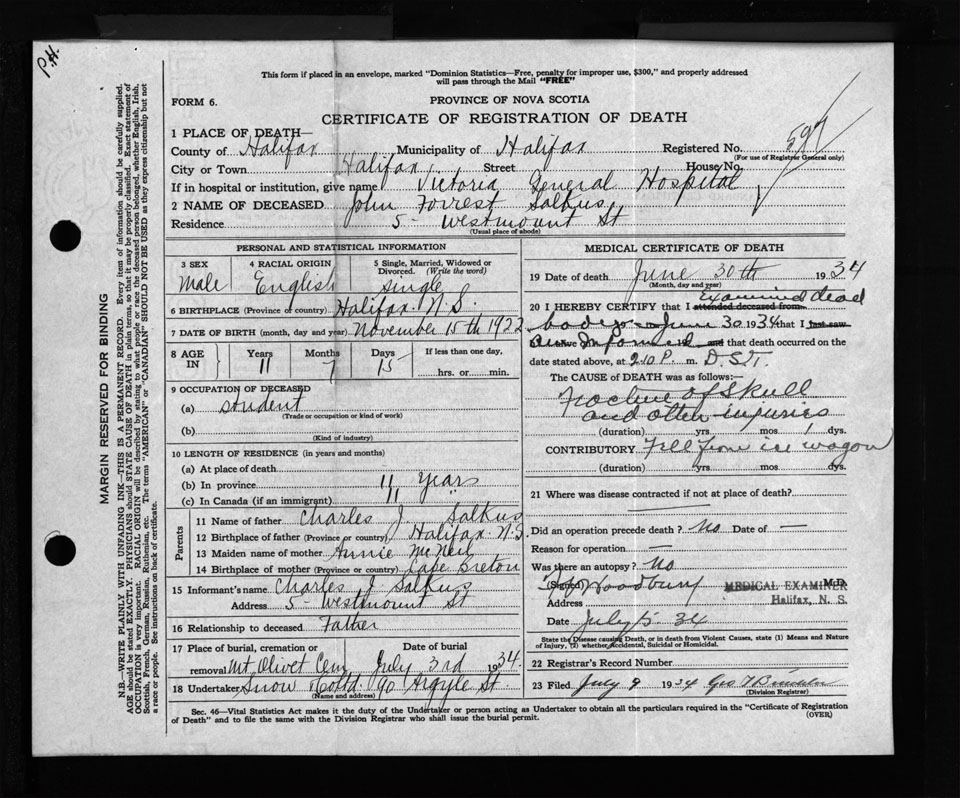 P.H.
This form if placed in an envelope, marked "Dominion Statistics—Free, penalty for improper use, $300," and properly addressed
will pass through the Mail "FREE"
FORM 6.
PROVINCE OF NOVA SCOTIA
CERTIFICATE OF REGISTRATION OF DEATH
597
1 PLACE OF DEATH—
County of Halifax Municipality of Halifax Registered No.
(For use of Registrar General only)
City or Town Halifax, Street House No.
If in hospital or institution, give name Victoria General Hospital
2 NAME OF DECEASED John Forrest Salkus
Residence 5 - Westmount St
(Usual place of abode)
PERSONAL AND STATISTICAL INFORMATION
3 SEX Male
4 RACIAL ORIGIN English
5 Single, Married, Widowed or Divorced. (Write the word) single
6 BIRTHPLACE (Province or country) Halifax N.S.
7 DATE OF BIRTH (month, day and year) November 15th 1922
8 AGE IN Years 11 Months 7 Days 15 If less than one day, hrs. or min.
9 OCCUPATION OF DECEASED
(a) student
(Trade or occupation or kind of work)
(b)
(Kind of industry)
10 LENGTH OF RESIDENCE (in years and months)
(a) At place of death
(b) In province 11 Years
(c) In Canada (if an immigrant) "
Parents
11 Name of father Charles J Salkus
12 Birthplace of father (Province or country) Halifax N.S.
13 Maiden name of mother Annie McNeil
14 Birthplace of mother (Province or country) Cape Breton
15 Informant's name Charles J Salkus
Address 5 - Westmount St
16 Relationship to deceased Father
17 Place of burial, cremation or removal Mt Olivet Cem Date of burial July 3rd 1934
18 Undertaker Snow & Co Ltd 90 Argyle St.
(Name and address)
MEDICAL CERTIFICATE OF DEATH
19 Date of death June 30th 1934
(Month, day and year)
20 I HEREBY CERTIFY that I attended deceased from examined dead
body June 30 1934 that I last saw
alive informed and that death occurred on the
date stated above, at 2.10 P. m. D.S.T.
The CAUSE OF DEATH was as follows:—
Fracture of Skull
and other injuries
(duration) yrs. mos. dys.
CONTRIBUTORY Fell from ice wagon
(duration) yrs. mos. dys.
21 Where was disease contracted if not at place of death?
Did an operation precede death? No Date of —
Reason for operation —
Was there an autopsy? No
(Signed) Woodbury M.D.
MEDICAL EXAMINER
Address Halifax, N. S.
Date July 5 34
State the Disease causing Death, or in death from Violent Causes, state (1) Means and Nature
of Injury, (2) whether Accidental, Suicidal or Homicidal.
22 Registrar's Record Number
23 Filed July 9 1934 Geo
(Division Registrar)
Sec. 46—Vital Statistics Act makes it the duty of the Undertaker or person acting as Undertaker to obtain all the particulars required in the "Certificate of Registration
of Death" and to file the same with the Division Registrar who shall issue the burial permit. (OVER)
MARGIN RESERVED FOR BINDING
N.B.—WRITE PLAINLY WITH UNFADING INK—THIS IS A PERMANENT RECORD. Every item of information should be carefully supplied.
AGE should be stated EXACTLY. PHYSICIANS should STATE CAUSE OF DEATH in plain terms, so that it may be properly classified. Exact statement of
OCCUPATION is very important. RACIAL ORIGIN will be described by stating to what people or race the deceased person belonged, whether English, Irish,
Scottish, French, German, Russian, Ruthenian, etc. The terms "AMERICAN" or "CANADIAN" SHOULD NOT BE USED as they express citizenship but not
a race or people. See instructions on back of certificate.